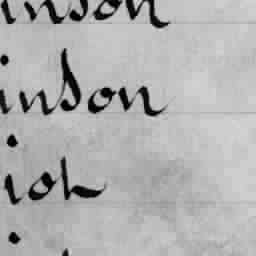 inson
inson
ich